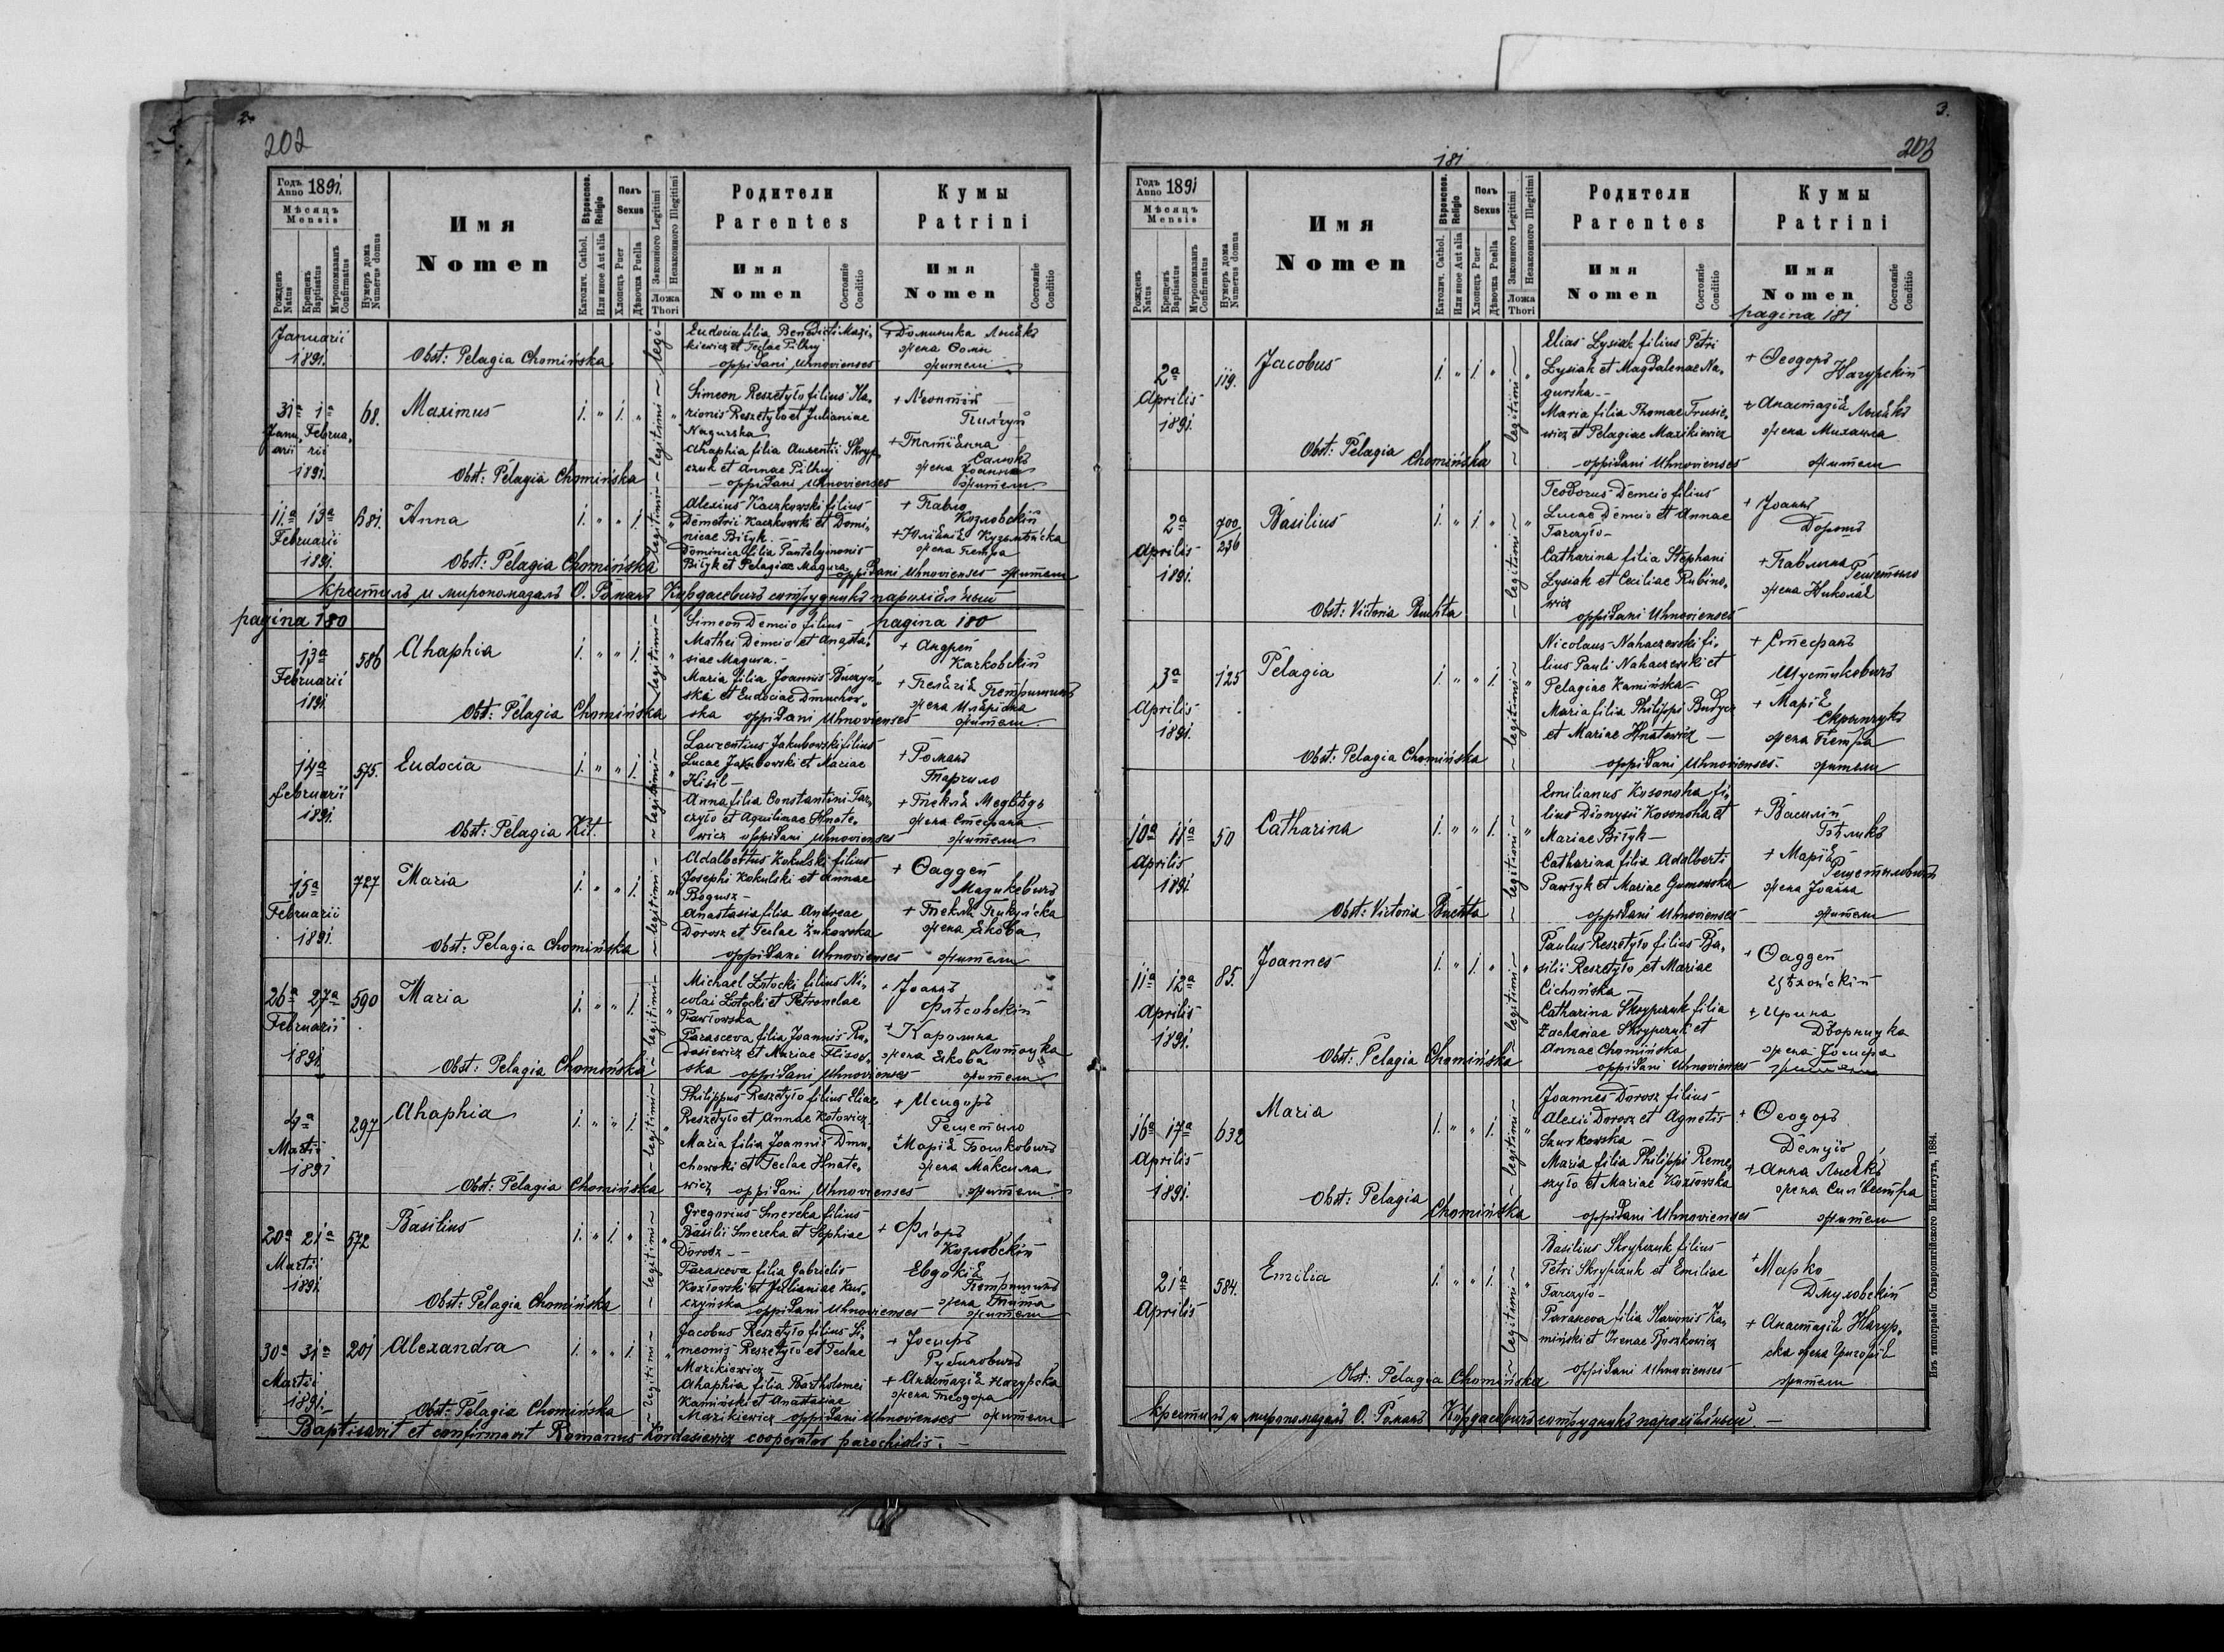 2.
202
Годъ Anno 1891.
Мѣсяцъ
Mensis
Рожденъ Natus
Крещенъ Baptisatus
Мѵропомазанъ Confirmatus
Нумеръ дома
Numerus domus
Имя
Nomen
Вѣроиспов. Religio
Католич. Cathol.
Или иное Aut alia
Полъ
Sexus
Хлопецъ Puer
Дѣвочка Puella
Законного Legitimi
Незаконного Illegitimi
Ложа
Thori
Родители
Parentes
Имя
Nomen
Состояніе
Conditio
Кумы
Patrini
Имя
Nomen
Состояніе
Conditio
Januarii
1891.
Obst: Pelagia Chomińska
Eudocia filia Benedicti Mazi-
kiewicz et Teclae Pilhuj
oppidani Uhnovienses
+ Доминика Лысакъ
жена Фомы
жители
31a 1a
Janu- Februa-
arii rii
1891.
68.
Maximus
1. " 1. "
legitimi
Simeon Reszetyło filius Ila-
rionis Reszetyło et Julianiae
Nagurska
Ahaphia filia Auxentii Skryp-
czuk et Annae Pilhuj
- oppidani Uhnovienses
+ Леонтій
Пилгуй
+ Татіанна
Салюкъ
жена Іоанна
жители
Obst: Pelagia Chomińska
11a 13a
Februarii
1891.
681.
Anna
1. " " 1.
legitimi
Alexius Kaczkowski filius
Demetrii Kaczkowski et Domi-
nicae Biłyk.
Dominica filia Pantalejmonis
Biłyk et Pelagiae Magura
oppidani Uhnovienses
+ Павло
Козловскій
+ Юліанія Кузьмѣнска
жена Петра
жители
Obst: Pelagia Chomińska
крестилъ и миропомазалъ О. Романъ Кордасевичъ сотрудникъ парохіальный
pagina 180
pagina 180
13a
Februarii
1891
586
Ahaphia
1. " " 1.
legitimi
Simeon Demcio filius
Mathei Demcio et Anasta-
siae Magura.
Maria filia Joannis Buczyń-
ska et Eudociae Dmuchow-
ska oppidani Uhnovienses
+ Андрей
Качковскій
+ Пелагія Петришинъ
жена Иларіона
жители
Obst: Pelagia Chomińska
14a
Februarii
1891.
575.
Eudocia
1. " " 1.
legitimi
Laurentius Jakubowski filius
Lucae Jakubowski et Mariae
Kisil
Anna filia Constantini Tar-
czyło et Aquilinae Hnate-
wicz oppidani Uhnovienses
+ Романъ
Тарчило
+ Текля Медвѣдь
жена Стефана
жители
Obst: Pelagia Kit.
15a
Februarii
1891.
727
Maria
1. " " 1.
legitimi
Adalbertus Kokulski filius
Josephi Kokulski et Annae
Bogusz
Anastasia filia Andreae
Dorosz et Teclae Zukowska
oppidani Uhnovienses
+ Ѳаддей
Мадикевичъ
+ Текля Пикульска
жена Якова
жители
Obst: Pelagia Chomińska
26a 27a
Februarii
1891.
590
Maria
1. " " 1.
legitimi
Michael Łotocki filius Ni-
colai Łotocki et Petronelae
Pawłowska
Parasceva filia Joannis Ru-
dasiewicz et Mariae Flisow-
ska oppidani Uhnovienses
+ Іоаннъ
Флѣсовскій
+ Каролина
Лотоцка
жена Якова
жители
Obst: Pelagia Chomińska
4a
Martii
1891
297
Ahaphia
1. " " 1.
legitimi
Philippus Reszetyło filius Eliae
Reszetyło et Annae Kotowicz.
Maria filia Joannis Dmu-
chowski et Teclae Hnate-
wicz oppidani Uhnovienses
+ Исидоръ
Решетило
+ Марія Бошковичъ
жена Максима
жители
Obst: Pelagia Chomińska
20a 21a
Martii
1891.
572
Basilius
1. " 1. "
legitimi
Gregorius Smereka filius
Basilii Smereka et Sophiae
Dorosz
Parasceva filia Gabrielis
Kozłowski et Julianiae Ku-
czyńska
oppidani Uhnovienses
+ Флоръ
Козловскій
Евдокія
Петришинъ
жена Тита
жители
Obst: Pelagia Chomińska
30a 31a
Martii
1891.
201
Alexandra
1. " " 1.
legitimi
Jacobus Reszetyło filius Si-
meonis Reszetyło et Teclae
Mazikiewicz
Ahaphia filia Bartholomei
Kamiński et Anastasiae
Mazikiewicz oppidani Uhnovienses
+ Іосифъ
Рубиновичъ
+ Анастазія Нагурска
жена Теодора
жители
Obst: Pelagia Chomińska
Baptisavit et confirmavit Romanus Kordasiewicz cooperator parochialis.
3.
203
181
Годъ Anno 1891
Мѣсяцъ
Mensis
Рожденъ Natus
Крещенъ Baptisatus
Мѵропомазанъ Confirmatus
Нумеръ дома
Numerus domus
Имя
Nomen
Вѣроиспов. Religio
Католич. Cathol.
Или иное Aut alia
Полъ
Sexus
Хлопецъ Puer
Дѣвочка Puella
Законного Legitimi
Незаконного Illegitimi
Ложа
Thori
Родители
Parentes
Имя
Nomen
Состояніе
Conditio
Кумы
Patrini
Имя
Nomen
Состояніе
Conditio
pagina 181
2a
Aprilis
1891.
119.
Jacobus
1. " 1. "
legitimi
Elias Lysiak filius Petri
Lysiak et Magdalenae Na-
gurska.
Maria filia Thomae Trusie-
wicz et Pelagiae Mazikiewicz
oppidani Uhnovienses
+ Ѳеодоръ
Нагурскій
+ Анастазія Лысакъ
жена Михаила
жители
Obst: Pelagia Chomińska
2a
Aprilis
1891.
700/236
Basilius
1. " 1. "
legitimi
Teodorus Demcio filius
Lucae Demcio et Annae
Tarczyło
Catharina filia Stephani
Lysiak et Ceciliae Rubino-
wicz
oppidani Uhnovienses
+ Іоаннъ
Дорошъ
+ Павлина
Решетило
жена Николая
Obst: Victoria Buchta
3a
Aprilis
1891.
125
Pelagia
1. " " 1.
legitimi
Nicolaus Nahaczewski fi-
lius Pauli Nahaczewski et
Pelagiae Kamińska
Maria filia Philippi Budyn
et Mariae Hnatewicz
oppidani Uhnovienses.
+ Стефанъ
Шустикевичъ
+ Марія
Скрипчукъ
жена Петра
жители
Obst: Pelagia Chomińska
10a 11a
Aprilis
1891
50
Catharina
1. " " 1.
legitimi
Emilianus Kosonoha fi-
lius Dionysii Kosonoha et
Mariae Biłyk
Catharina filia Adalberti
Pawłyk et Mariae Gumowska
oppidani Uhnovienses
+ Василій
Бѣликъ
+ Марія
Решетиловичъ
жена Іоанна
жители
Obst: Victoria Buchta
11a 12a
Aprilis
1891.
85.
Joannes
1. " 1. "
legitimi
Paulus Reszetyło filius Ba-
silii Reszetyło et Mariae
Cichońska
Catharina Skrypczuk filia
Zachariae Skrypczuk et
Annae Chomińska
oppidani Uhnovienses
+ Ѳаддей
Цѣхоńскій
+ Ирина
Дворницка
жена Іосифа
жители
Obst: Pelagia Chomińska
16a 17a
Aprilis
1891.
632
Maria
1. " " 1.
legitimi
Joannes Dorosz filius
Alexii Dorosz et Agnetis
Szurkowska
Maria filia Philippi Reme-
szyło et Mariae Kozłowska
oppidani Uhnovienses
+ Ѳеодоръ
Демцьо
+ Анна Лысякъ
жена Сильвестра
жители
Obst: Pelagia Chomińska
21a
Aprilis
584.
Emilia
1. " " 1.
legitimi
Basilius Skrypczuk filius
Petri Skrypczuk et Emiliae
Tarczyło
Parasceva filia Ilarionis Ka-
miński et Irenae Boszkowicz
oppidani Uhnovienses
+ Марко
Дмуховскій
+ Анастазія Нагур-
ска жена Григорія
жители
Obst: Pelagia Chomińska
крестилъ и миропомазалъ О. Романъ Кордасевичъ сотрудникъ парохіяльный.
Изъ типографіи Ставропигійского Института, 1884.